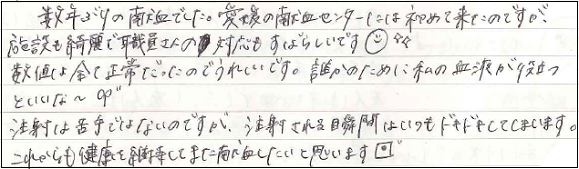 数年ぶりの献血でした。愛媛の献血センターには初めて来たのですが、
施設も綺麗で職員さんの対応もすばらしいです☺☆☆
数値は全て正常だったのでうれしいです。誰かのために私の血液が役立つ
といいな〜
注射は苦手ではないのですが、注射される瞬間はいつもドキドキしてしまいます。
これからも健康を維持してまた献血したいと思います